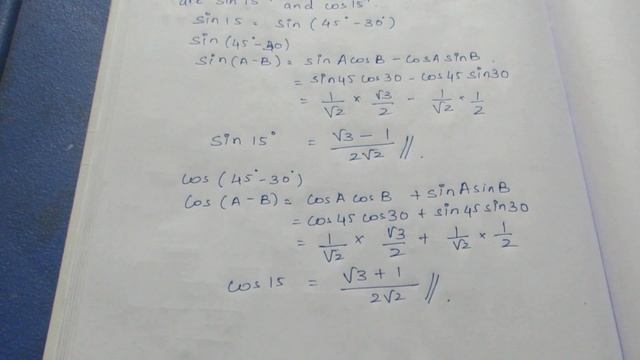 are sin 15° and cos 15°.
sin 15 = sin (45° - 30°)
sin (45° - 30)
sin (A - B) = sin A cos B - cos A sin B.
= sin 45 cos 30 - cos 45 sin 30
= 1/√2 × √3/2 - 1/√2 × 1/2
sin 15° = √3 - 1 / 2√2 //.
cos (45° - 30°)
cos (A - B) = cos A cos B + sin A sin B
= cos 45 cos 30 + sin 45 sin 30
= 1/√2 × √3/2 + 1/√2 × 1/2
cos 15 = √3 + 1 / 2√2 //.